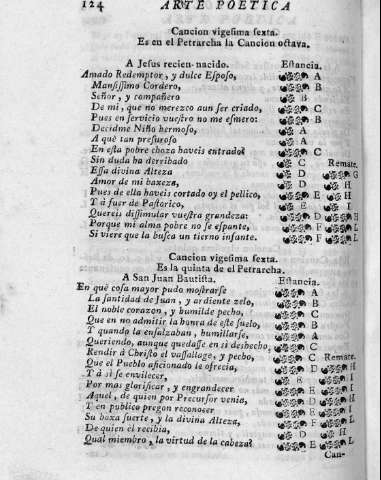 124 ARTE POETICA
Cancion vigesima sexta.
Es en el Petrarcha la Cancion octava.
A Jesus recien-nacido. Estancia.
Amado Redemptor, y dulce Esposo, A
Mansissimo Cordero, B
Señor, y compañero B
De mi, que no merezco aun ser criado, C
Pues en servicio vuestro no me esmero: B
Decidme Niño hermoso, A
A què tan presuroso A
En esta pobre choza haveis entrado? C
Sin duda ha derribado C Remate.
Essa divina Alteza D G
Amor de mi baxeza, D H
Pues de ella haveis cortado oy el pellico, E H
Y à fuer de Pastorico, E I
Quereis dissimular vuestra grandeza: D
Porque mi alma pobre no se espante, F L
Si viere que la busca un tierno infante. F L
Cancion vigesima sexta.
Es la quinta de el Petrarcha.
A San Juan Bautista. Estancia.
En què cosa mayor pudo mostrarse A
La santidad de Juan, y ardiente zelo, B
El noble corazon, y humilde pecho, C
Que en no admitir la honra de este suelo, B
Y quando la ensalzaban, humillarse, A
Queriendo, aunque quedasse en sì deshecho, C
Rendir à Christo el vassallage, y pecho, C Remate.
Que el Pueblo aficionado le ofrecia, D H
Y à sì se envilecer, E I
Por mas glorificar, y engrandecer E H
Aquel, de quien por Precursor venia, D I
Y en publico pregon reconocer E I
Su baxa suerte, y la divina Alteza, F L
De quien el recibia, D H
Qual miembro, la virtud de la cabeza? F L
Can-